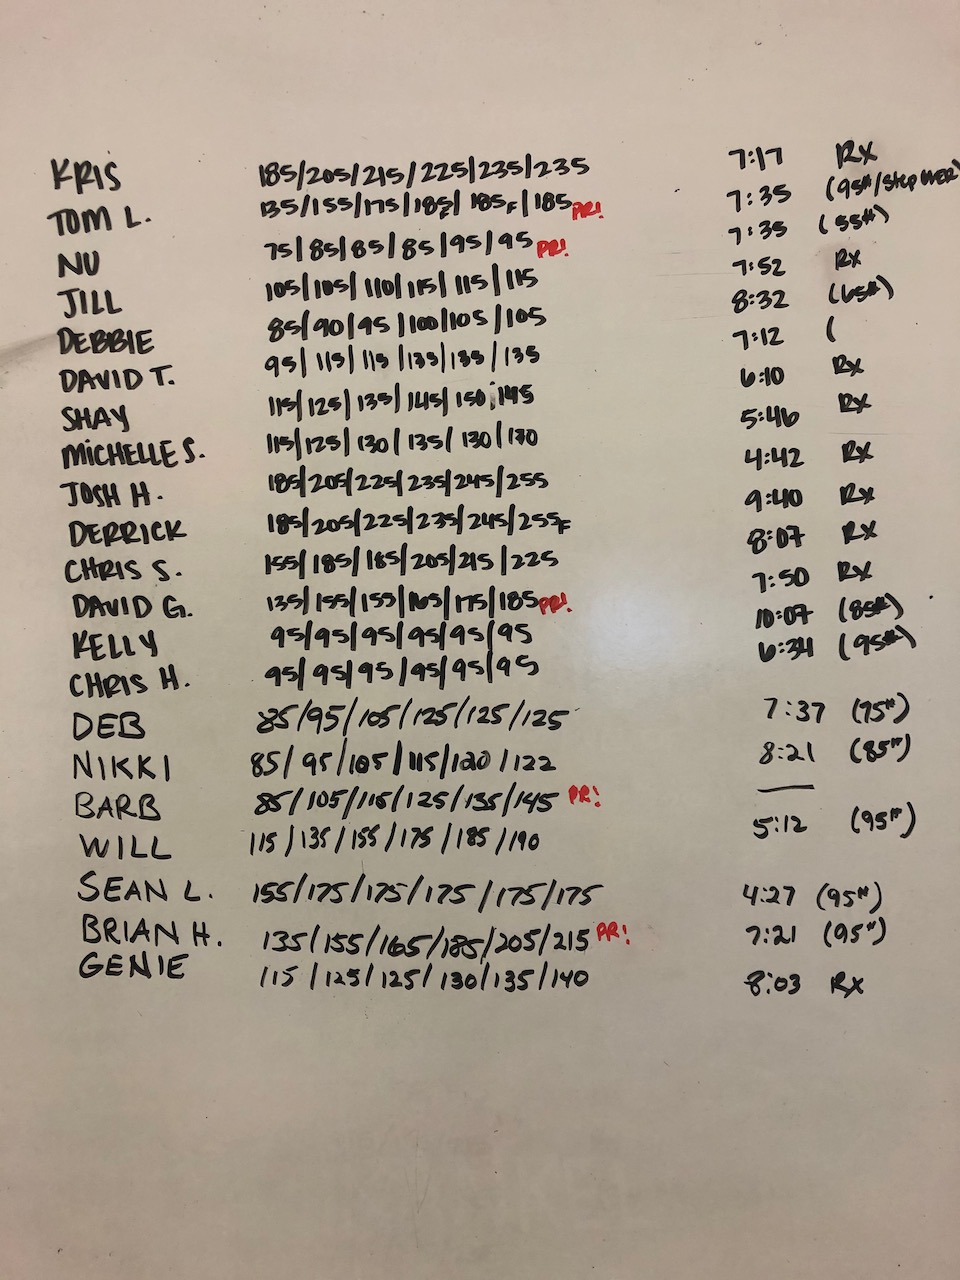 KRIS 185/205/215/225/235/235 7:17 Rx
TOM L. 135/155/175/185F/185F/185 PR! 7:35 (95#/step over)
NU 75/85/85/85/95/95 PR! 7:35 (55#)
JILL 105/105/110/115/115/115 7:52 Rx
DEBBIE 85/90/95/100/105/105 8:32 (65#)
DAVID T. 95/115/115/135/135/135 7:12 (
SHAY 115/125/135/145/150/145 6:10 Rx
MICHELLE S. 115/125/130/135/130/130 5:46 Rx
JOSH H. 185/205/225/235/245/255 4:42 Rx
DERRICK 185/205/225/235/245/255F 9:40 Rx
CHRIS S. 155/185/185/205/215/225 8:07 Rx
DAVID G. 135/155/155/165/175/185 PR! 7:50 Rx
KELLY 95/95/95/95/95/95 10:07 (85#)
CHRIS H. 95/95/95/95/95/95 6:34 (95#)
DEB 85/95/105/125/125/125 7:37 (75#)
NIKKI 85/95/105/115/120/122 8:21 (85#)
BARB 85/105/115/125/135/145 PR! —
WILL 115/135/155/175/185/190 5:12 (95#)
SEAN L. 155/175/175/175/175/175 4:27 (95#)
BRIAN H. 135/155/165/185/205/215 PR! 7:21 (95#)
GENIE 115/125/125/130/135/140 8:03 Rx